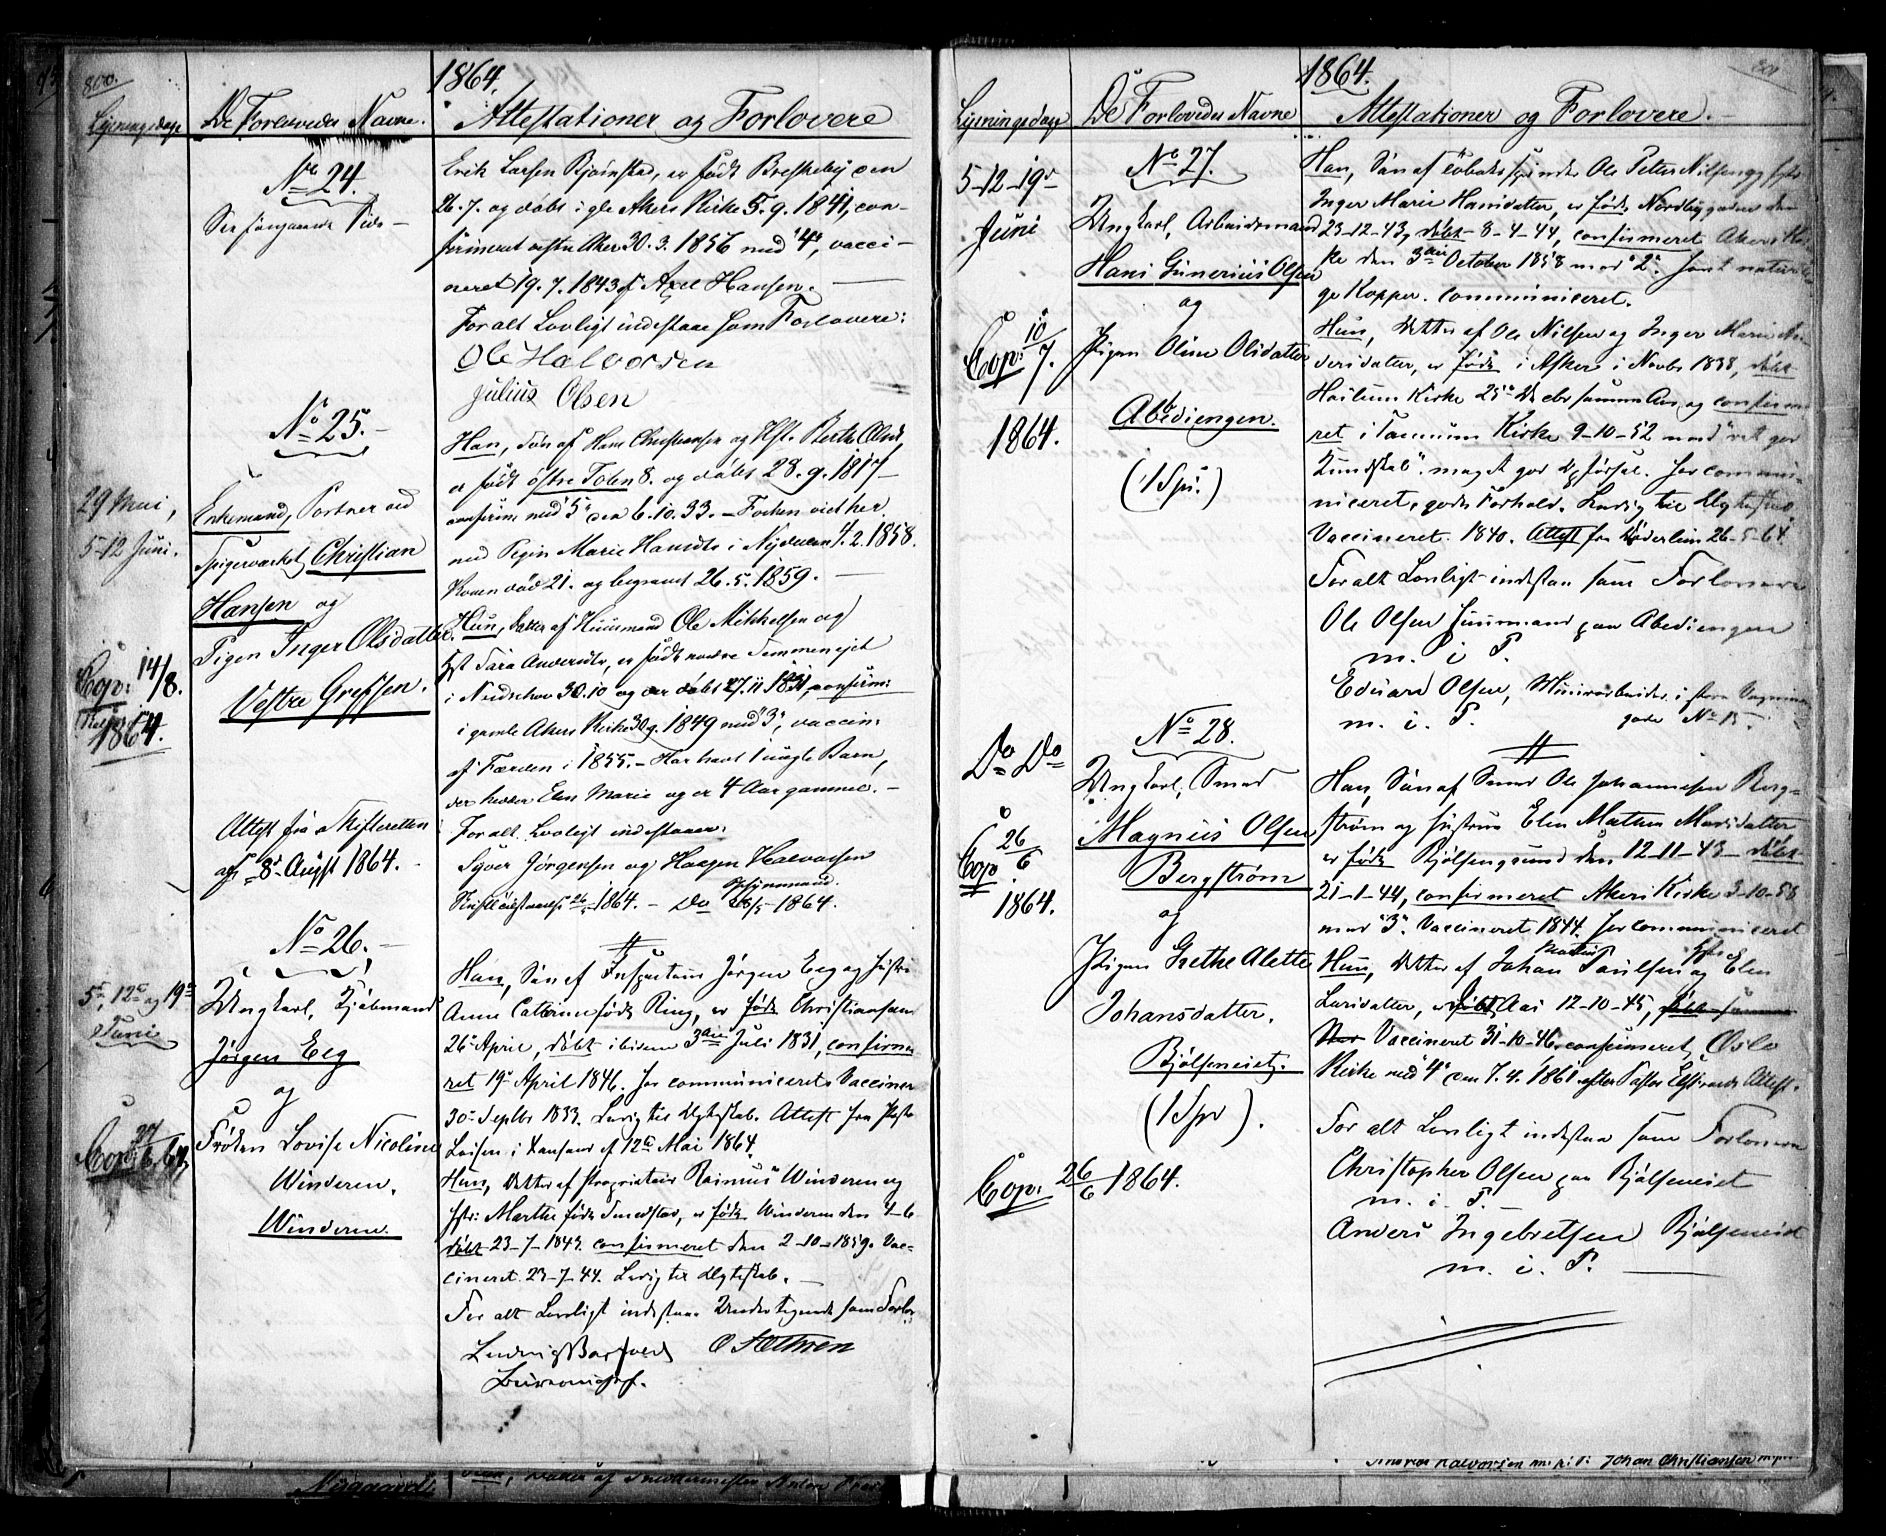 800.
1864.
Lysningsdage De Forlovedes Navne. Attestationer og Forlovere
No 24.
Se foregaaende Side -
Erik Larsen Bjørnstad, er født Breskeby den
26.7. og døbt i gle Akers Kirke 5.9.1841, con-
firmeret vestre Aker 30.3.1856 med "4", vacci-
neret 19.7.1843 af Axel Hansen.
For alt Lovligt indestaae som Forlovere:
Ole Halvorsen
Julius Olsen
No 25.
29 Mai,
5-12 Juni.
Enkemand, Portner ved
Spigerverket Christian
Hansen og
Pigen Inger Olsdatter.
Vestre Grefsen.
Cop: 14/8.
1864.
Attest fra Skifteretten
af 8de Augst 1864.
Han, Søn af Hans Christiansen og Hst. Berthe Olsd,
er født østre Toten 8. og døbt 28.9.1817
confirm med 5 den 6.10.33. - Forhen viet her
med Pigen Marie Hansdtr i Nydalen 7.2.1858.
Konen død 21. og begravet 26.5.1859.
Hun, Datter af Huusmand Ole Mikkelsen og
Hst Sara Andersdtr, er født nedre Semmeneiet
i Næs 30.10 og der døbt 27.11.1831, confirm:
i gamle Akers Kirke 30.9.1849 med "3", vaccin:
af Færden i 1855. - Har havt 1 uægte Barn,
der hedder Elen Marie og er 4 Aar gammel. -
For alt Lovligt indestaaer:
Syver Jørgensen og Haagen Halvorsen
Huusmand.
1864. - Do 1864.
No 26.
5te, 12te og 19de
Juni
Ungkarl, Kjøbmand
Jørgen Eeg
og
Frøken Lovise Nicoline
Winderen.
Winderen.
Cop: 6/64
Han, Søn af Inspecteur Jørgen Eeg og Hustru
Anne Catrine født Ring, er født Christianssand
26de April, døbt ibidem 3die Juli 1831, confirme-
ret 19de April 1846. Har communiceret. Vaccineret
30te Septbr 1833. Ledig til Ægteskab. Attest fra Præsten
i Xansand af 12te Mai 1864.
Hun, Datter af Proprietair Rasmus Winderen og
Hstr: Marthe født Smedstad, er født Winderen den 4-6
døbt 23-7-1843. confirmeret den 2-10-1859. Vac-
cineret 23-7-44. Ledig til Ægteskab.
For alt Lovligt indestaae Undertegnede som Forlov:
Ludvig
801
1864.
Lysningsdage De Forlovedes Navne Attestationer og Forlovere.
No 27.
5-12-19de
Juni
Ungkarl, Arbeidsmand
Hans Gunerius Olsen
og
Pigen Oline Olsdatter
Abediengen.
(1 Spd.)
Cop: 10/7.
1864.
Han, Søn af Tobaksspinder Ole Petter Nilsen og Hstr
Inger Marie Hansdatter, er født Nordbygaden den
23-12-43, døbt 8-4-44, confirmeret Akers Kir-
ke den 3die October 1858 med "2". havt naturli-
ge Kopper. communiceret.
Hun, Datter af Ole Nilsen og Inger Marie An-
dersdatter, er født i Asker i Novbr 1838, døbt
Haslum Kirke 25de Decbr samme Aar, og confirme-
ret i Tanum Kirke 9-10-52 med "ret god
Kundskab". meget god Opførsel. Har commu-
niceret, gode Forhold. Ledig til Ægteskab,
Vaccineret 1840. Attest fra Døderlein 26-5-64.
For alt Lovligt indestaa som Forlovere
Ole Olsen Huusmand paa Abediengen
m. i P.
Eduard Olsen, Muurarbeider i store Vogn
gade No 13.
m. i. P.
No 28.
Do Do
Ungkarl, Smed
Magnus Olsen
Bergstrøm
og
Pigen Grethe Alette
Johansdatter.
Bjølseneiet.
(1 Spd).
Cop 26/6
1864.
Cop: 26/6 1864.
Han, Søn af Smed Ole Johannesen Berg-
strøm og Hustru Elen Mathea Marisdatter
er født Bjølsengrund den 12-11-43 - døbt
21-1-44, confirmeret Akers Kirke 3-10-58
med "3". Vaccineret 1844. Har communiceret
Hun, Datter af Johan Paulsen og Hstr Elen
Larsdatter, er født Aas 12-10-45,
Vaccineret 31-10-46. confirmeret, Oslo
Kirke med "4" den 7.4.1861 efter Pastor Attest.
For alt Lovligt indestaa som Forlovere
Christopher Olsen paa Bjølseneiet
m. i. P.
Anders Ingebretsen Bjølseneiet
m. i. P.
Nygaard
Hun, Datter af
Andreas Halvorsen m. p. P. Johan Christiansen